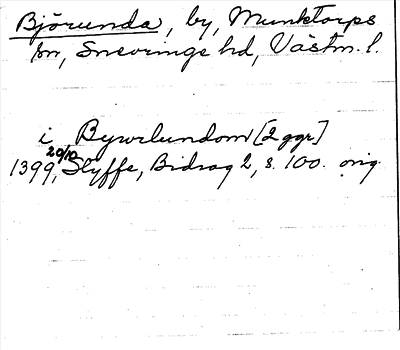 Björunda, by, Munktorps
sn, Snevringe hd, Västm. l.
i Bywrlundom [2 ggr]
20/10
1399, Styffe, Bidrag 2, s. 100. orig.